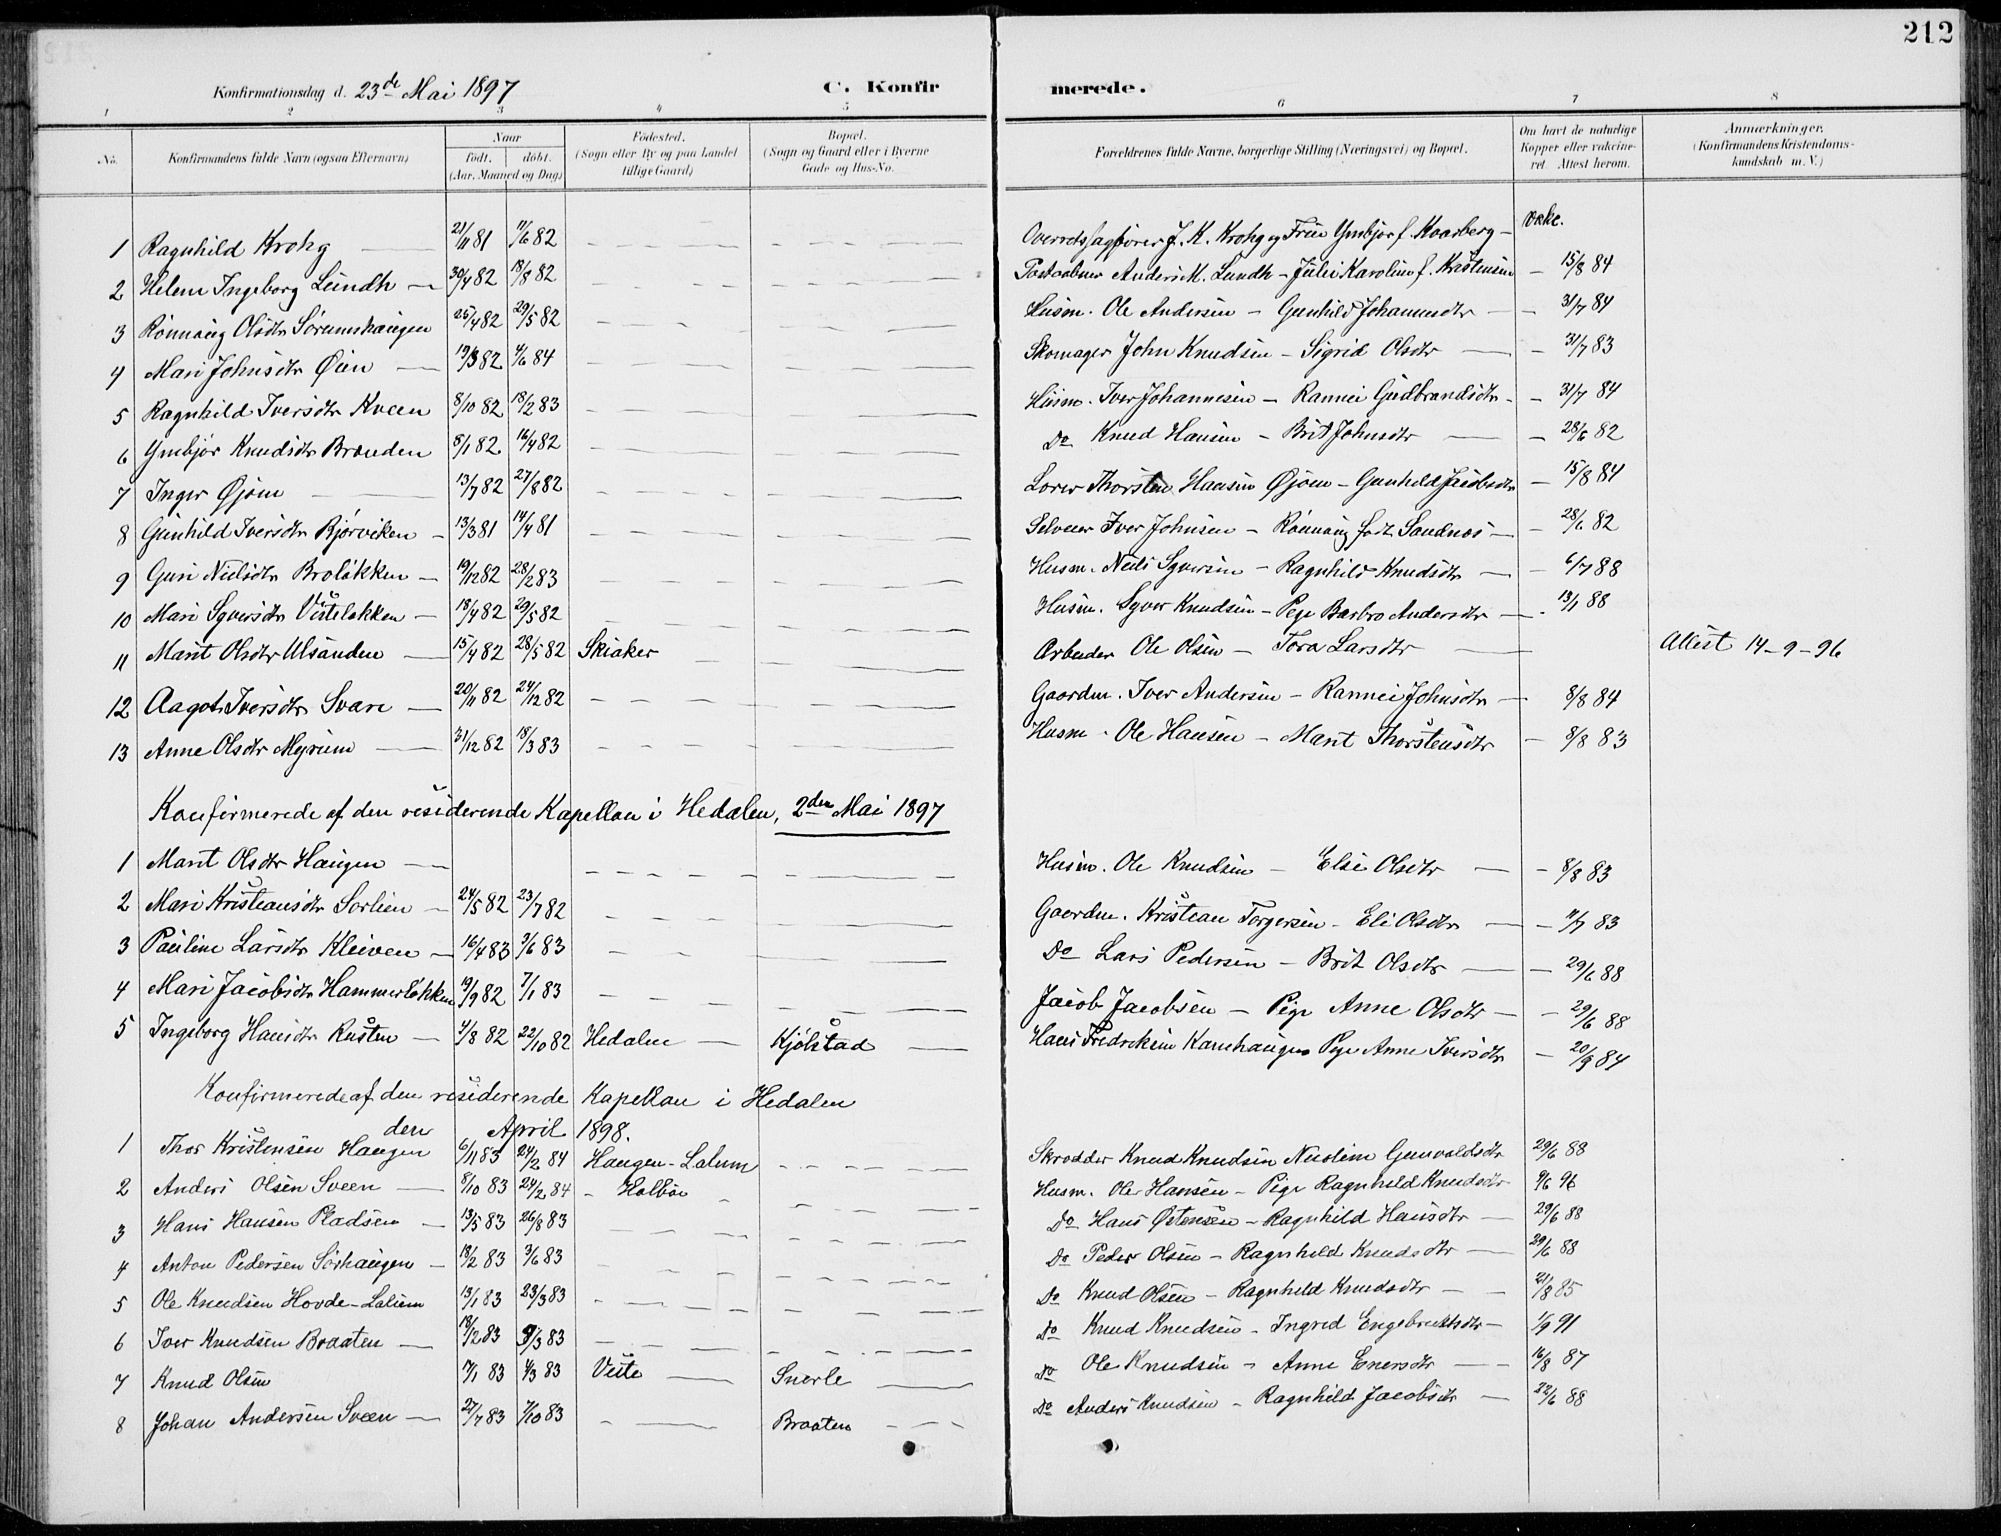 212
Konfirmationsdag d. 23de Mai 1897 C. Konfirmerede.
1 2 3 4 5 6 7 8
No. Konfirmandens fulde Navn (ogsaa Efternavn) Naar født. døbt. (Aar, Maaned og Dag) Fødested. (Sogn eller By og paa Landet tillige Gaard) Bopæl. (Sogn og Gaard eller i Byerne Gade og Hus-No. Forældrenes fulde Navne, borgerlige Stilling (Næringsvei) og Bopæl. Om havt de naturlige Kopper eller vakcineret. Attest herom. Anmærkninger. (Konfirmandens Kristendomskundskab m. V.)
1 Ragnhild Krohg 21/11 81 11/6 82 Overretssagfører J. K. Krohg og Frue Ymbjør f. Kaarberg - Vakc.
2 Helene Ingeborg Lundh 30/4 82 18/8 82 Postaabner Anders M. Lundh - Julie Karoline f. Kristensen - 15/8 84
3 Rønnaug Olsdtr Sørumshaugen 25/4 82 29/5 82 Husm. Ole Andersen - Gunhild Johannesdtr - 31/7 84
4 Mari Johnsdtr Øien 19/3 82 4/6 84 Skomager John Knudsen - Sigrid Olsdtr - 31/7 83
5 Ragnhild Iversdtr Kveen 8/10 82 18/2 83 Husm. Iver Johannesen - Rannei Gudbrandsdtr - 31/7 84
6 Ymbjør Knudsdtr Brænden 5/1 82 16/4 82 Do Knud Hansen - Brit Johnsdtr - 28/6 82
7 Inger Øjom 13/7 82 27/8 82 Lærer Thorsten Hansen Øjom - Gunhild Jacobsdtr - 15/8 84
8 Gunhild Iversdtr Bjørviken 13/3 81 14/4 81 Selveier Iver Johnsen - Rønnaug født Sandnes - 28/6 82
9 Guri Nielsdtr Broløkken 19/12 82 28/2 83 Husm. Niels Syversen - Ragnhild Knudsdtr - 6/7 88
10 Mari Syversdtr Visteløkken 18/4 82 29/5 82 Husm. Syver Knudsen - Pige Barbro Andersdtr - 13/1 88
11 Marit Olsdtr Ulsanden 15/4 82 28/5 82 Skiaker Arbeider Ole Olsen - Tora Larsdtr Attest 14-9-96
12 Aagot Iversdtr Svare 20/11 82 24/12 82 Gaardm. Iver Andersen - Rannei Johnsdtr - 8/8 84
13 Anne Olsdtr Myrum 31/12 82 18/3 83 Husm. Ole Hansen - Marit Thorstensdtr - 8/8 83
Konfirmerede af den residerende Kapellan i Hedalen, 2den Mai 1897
1 Marit Olsdtr Haugen Husm. Ole Knudsen - Else Olsdtr - 8/8 83
2 Mari Kristiansdtr Sørlien 24/5 82 23/7 82 Gaardm. Kristian Torgersen - Eli Olsdtr - 11/7 83
3 Pauline Larsdtr Kleiven 16/4 83 3/6 83 Do Lars Pedersen - Brit Olsdtr - 29/6 88
4 Mari Jacobsdtr Hammerløkken 19/9 82 7/1 83 Jacob Jacobsen - Pige Anne Olsdtr - 29/6 88
5 Ingeborg Hansdtr Rusten 4/8 82 22/10 82 Hedalen Kjølstad Hans Fredriksen Karnhaugen Pige Anne Iversdtr - 20/9 84
Konfirmerede af den residerende Kapellan i Hedalen
den April 1898.
1 Thor Kristensen Haugen 6/11 83 24/2 84 Haugen-Lalum Skrædder Knud Knudsen Gunvoldsdtr 29/6 88
2 Anders Olsen Sveen 8/10 83 24/2 84 - Holbøe Husm. Ole Hansen - Pige Ragnhild Knudsdtr 9/6 96
3 Hans Hansen Pladsen 13/5 83 26/8 83 Do Hans Østensen - Ragnhild Hansdtr 29/6 88
4 Anton Pedersen Sørhaugen 18/2 83 3/6 83 Do Peder Olsen - Ragnhild Knudsdtr 29/6 88
5 Ole Knudsen Hovde-Lalum 13/1 83 23/3 83 Do Knud Olsen - Ragnhild Knudsdtr 21/8 85
6 Iver Knudsen Braaten 18/2 83 9/3 83 Do Knud Knudsen - Ingrid Engebretsdtr 1/9 91
7 Knud Olsen 7/1 83 4/3 83 Viste Snerle Do Ole Knudsen - Anne Enersdtr 16/8 87
8 Johan Andersen Sveen 27/7 83 7/10 83 Braaten Do Anders Knudsen - Ragnhild Jacobsdtr 22/6 88